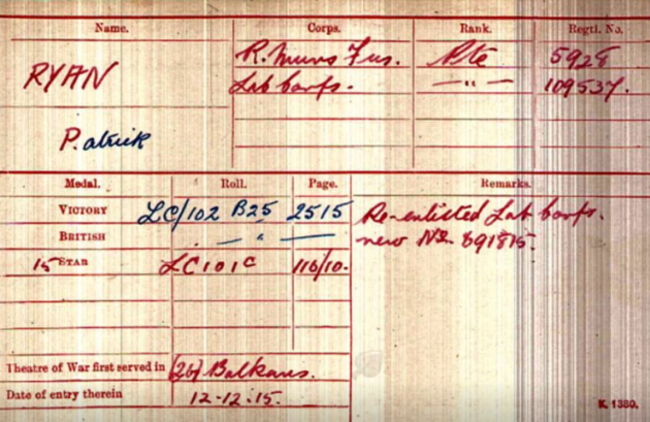 Name. Corps. Rank. Regtl. No.
RYAN R. Muns Fus. Pte 5928
Lab Corps. —"— 109537.
P. atrick
Medal. Roll. Page. Remarks.
VICTORY LC/102 B25 2515 Re-enlisted Lab Corps.
BRITISH — " — new No. 691815.
15 STAR LC101C 116/10.
Theatre of War first served in (2b) Balkans.
Date of entry therein 12-12-15.
K. 1380.